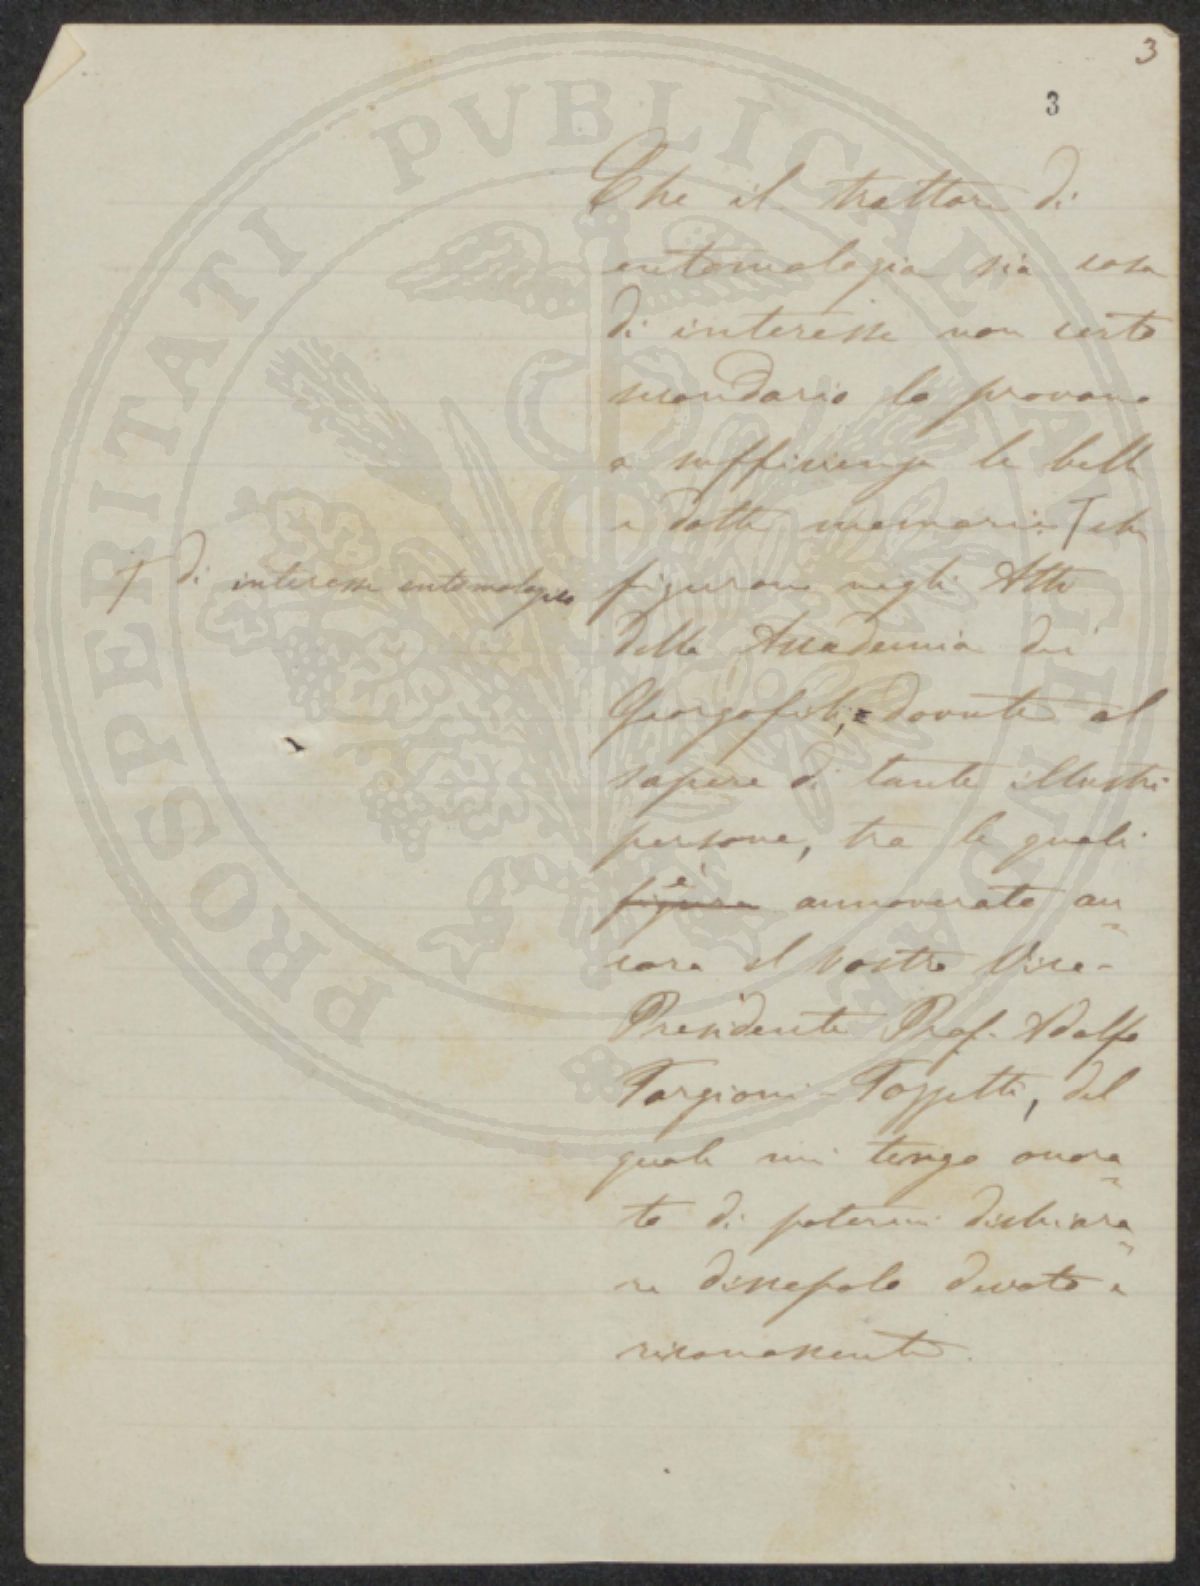 3
3
Che il trattare di
entomologia sia cosa
di interesse non certo
secondario lo provano
a sufficienza le belle
e dotte memorie T che
T di interesse entomologico
figurano negli Atti
della Accademia dei
Georgofili, dovute al
sapere di tante illustri
persone, tra le quali
è
figura annoverato an
cora il vostro Vice-
Presidente Prof. Adolfo
Targioni-Tozzetti, del
quale mi tengo onora
to di potermi dichiara
re discepolo devoto e
riconoscente.
PROSPERITATI PVBLICAE AVGENDAE